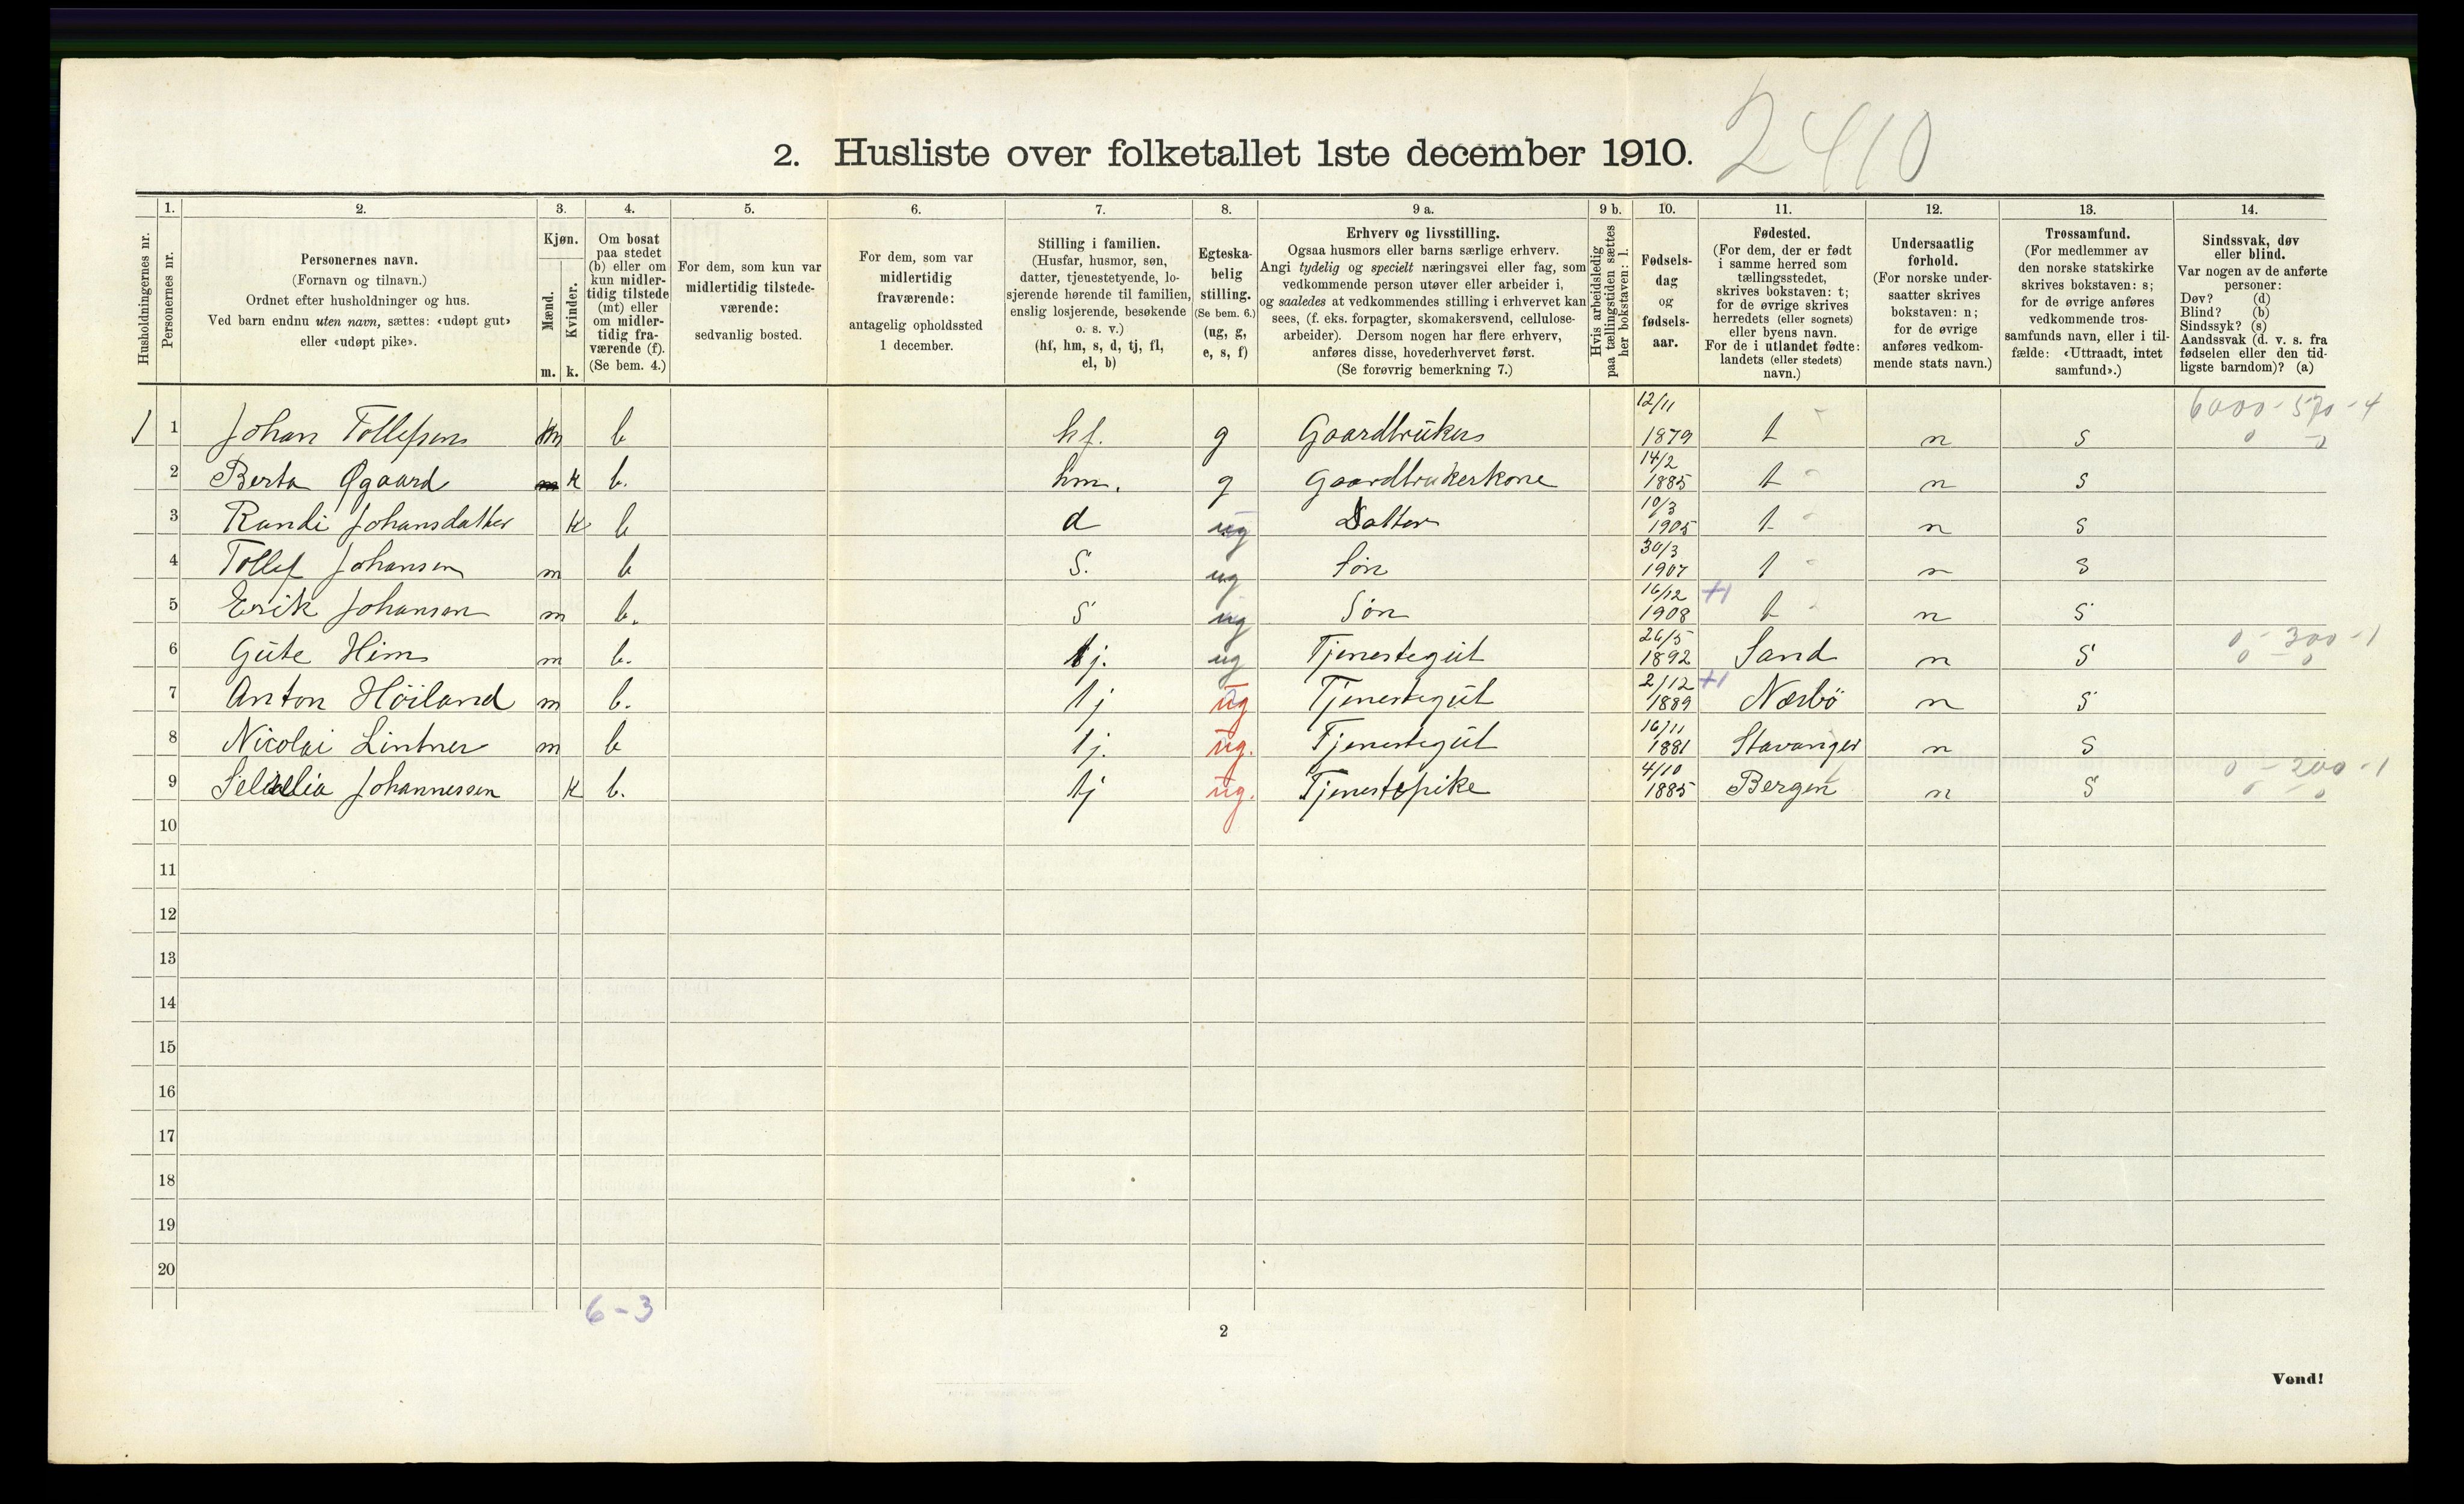 2. Husliste over folketallet 1ste december 1910. 2410
1. 2. 3. 4. 5. 6. 7. 8. 9 a. 9 b. 10. 11. 12. 13. 14.
Husholdningernes nr.
Personernes nr.
Personernes navn.
(Fornavn og tilnavn.)
Ordnet efter husholdninger og hus.
Ved barn endnu uten navn, sættes: «udøpt gut»
eller «udøpt pike».
Kjøn.
Mænd.
Kvinder.
m. k.
Om bosat
paa stedet
(b) eller om
kun midler-
tidig tilstede
(mt) eller
om midler-
tidig fra-
værende (f).
(Se bem. 4.)
For dem, som kun var
midlertidig tilstede-
værende:
sedvanlig bosted.
For dem, som var
midlertidig
fraværende:
antagelig opholdssted
1 december.
Stilling i familien.
(Husfar, husmor, søn,
datter, tjenestetyende, lo-
sjerende hørende til familien,
enslig losjerende, besøkende
o. s. v.)
(hf, hm, s, d, tj, fl,
el, b)
Egteska-
belig
stilling.
(Se bem. 6.)
(ug, g,
e, s, f)
Erhverv og livsstilling.
Ogsaa husmors eller barns særlige erhverv.
Angi tydelig og specielt næringsvei eller fag, som
vedkommende person utøver eller arbeider i,
og saaledes at vedkommendes stilling i erhvervet kan
sees, (f. eks. forpagter, skomakersvend, cellulose-
arbeider). Dersom nogen har flere erhverv,
anføres disse, hovederhvervet først.
(Se forøvrig bemerkning 7.)
Hvis arbeidsledig
paa tællingstiden sættes
her bokstaven: l.
Fødsels-
dag
og
fødsels-
aar.
Fødested.
(For dem, der er født
i samme herred som
tællingsstedet,
skrives bokstaven: t;
for de øvrige skrives
herredets (eller sognets)
eller byens navn.
For de i utlandet fødte:
landets (eller stedets)
navn.)
Undersaatlig
forhold.
(For norske under-
saatter skrives
bokstaven: n;
for de øvrige
anføres vedkom-
mende stats navn.)
Trossamfund.
(For medlemmer av
den norske statskirke
skrives bokstaven: s;
for de øvrige anføres
vedkommende tros-
samfunds navn, eller i til-
fælde: «Uttraadt, intet
samfund».)
Sindssvak, døv
eller blind.
Var nogen av de anførte
personer:
Døv? (d)
Blind? (b)
Sindssyk? (s)
Aandssvak (d. v. s. fra
fødselen eller den tid-
ligste barndom)? (a)
1 1 Johan Tollefsen m b hf. g Gaardbruker 12/11 1879 t n s 6000 - 570 - 4 0 - 0
2 Berta Øgaard k b. hm. g Gaardbrukerkone 14/2 1885 t n s
3 Randi Johansdatter k b d ug Datter 10/3 1905 t n s
4 Tollef Johansen m b S. ug Søn 30/3 1907 t n s
5 Erik Johansen m b. S ug Søn 16/12 1908 +1 t n s
6 Gute Him m b. tj. ug Tjenestegut 26/5 1892 Sand n s 0 - 300 - 1 0 - 0
7 Anton Höiland m b. tj ug Tjenestegut 2/12 1889 +1 Nærbö n s
8 Nicolai Lintner m b tj. ug. Tjenestegut 16/11 1881 Stavanger n s
9 Johannessen k b. tj ug. Tjenestepike 4/10 1885 Bergen n s 0 - 200 - 1 0 - 0
10
11
12
13
14
15
16
17
18
19
20
6 - 3
2
Vend!